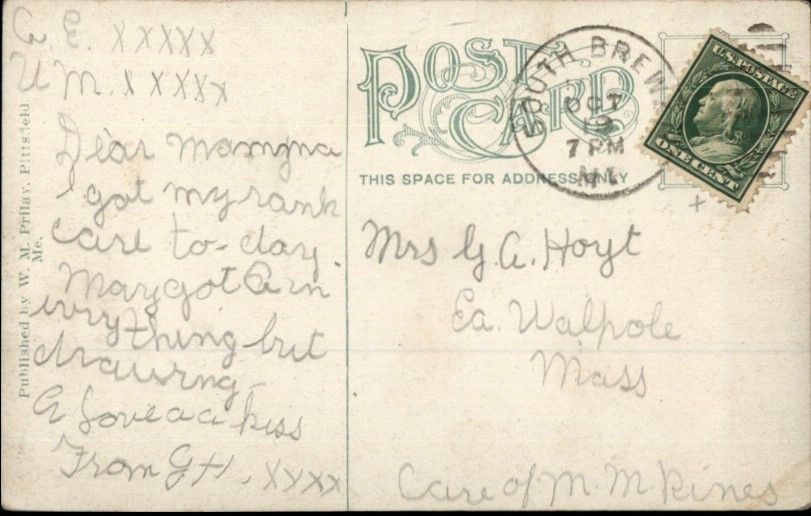 G. E. XXXXX
U M. XXXXX
Dear Mamma
I got my rank
card to-day.
May got A in
every thing but
drawing
A Love a a kiss
From G H. XXXX
Published by W. M. Prilay, Pittsfield
Me.
POST CARD
THIS SPACE FOR ADDRESS ONLY
SOUTH BREW
OCT
19
7 PM
ME.
U.S. POSTAGE
ONE CENT
Mrs G. A. Hoyt
Ea. Walpole
Mass
Care of M. M Rines